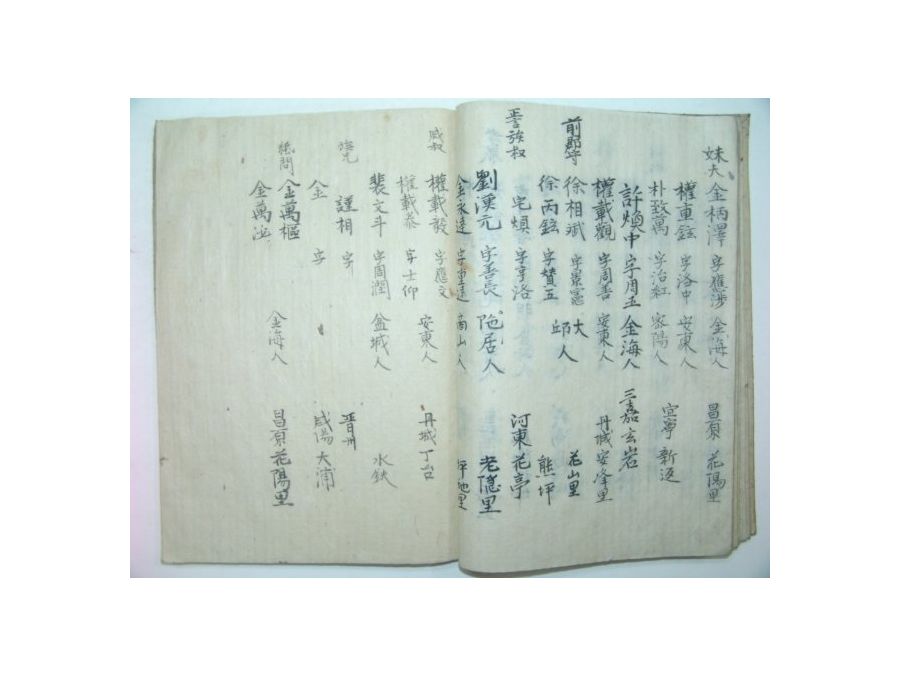 妹夫 金柄澤 字應涉 金海人 昌原 花陽里
權重鉉 字洛中 安東人
朴致萬 字治紅 密陽人 宜寧 新返
許煥中 字周玉 金海人 三嘉 玄岩
權載觀 字周善 安東人 丹城 安峰里
前郡守 徐相斌 字景憲 大邱人 花山里
徐丙鉉 字贊五 熊坪
族叔 宅煩 字亨洛 河東 花亭
劉漢元 字善長 居人 老隱里
金永達 字重達 商山人 坪地里
戚叔 權載毅 字應文 安東人 丹城 丁台
權載泰 字士仰
裴文斗 字周潤 盆城人 水鉄
族兄 謹相 字 晋州
金 字 咸陽 大浦
金萬樞 金海人 昌原 花陽里
金萬